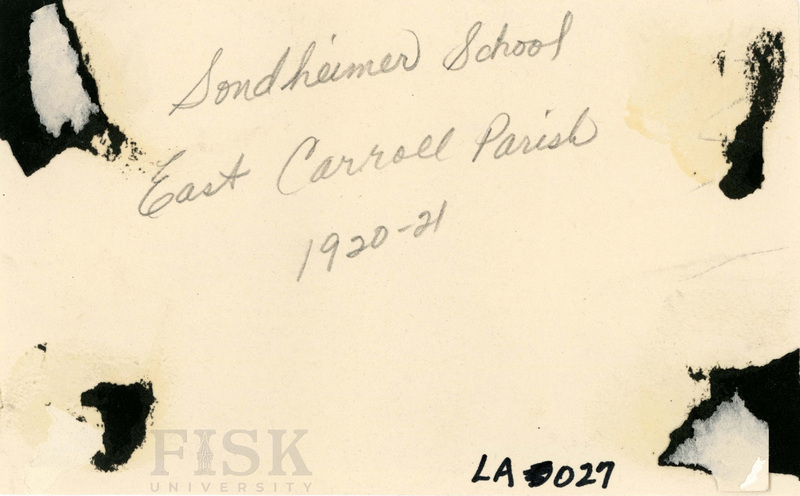 Sondheimer School
East Carroll Parish
1920-21
FISK
UNIVERSITY
LA 0027